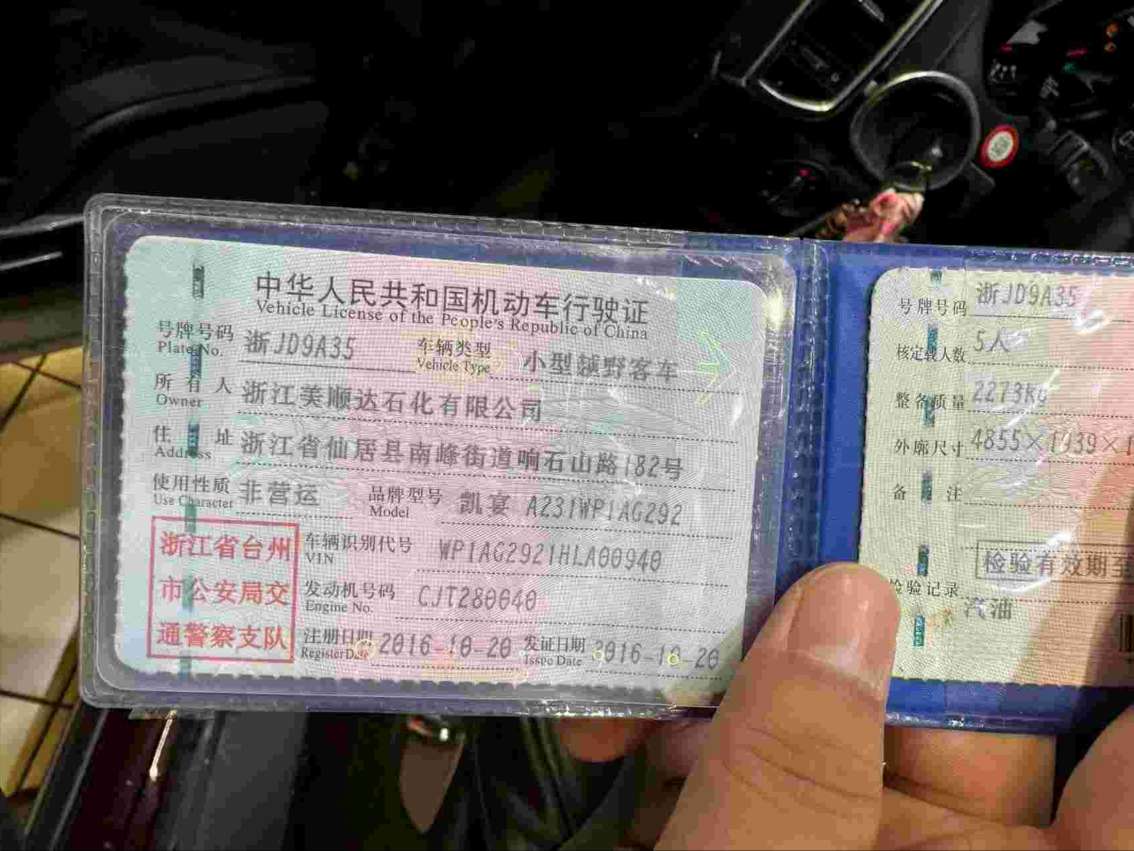 中华人民共和国机动车行驶证
Vehicle License of the People's Republic of China
号牌号码 浙JD9A35 车辆类型 小型越野客车
Plate No. Vehicle Type
所有人 浙江美顺达石化有限公司
Owner
住址 浙江省仙居县南峰街道响石山路182号
Address
使用性质 非营运 品牌型号 凯宴 A231WP1AG292
Use Character Model
浙江省台州
市公安局交
通警察支队
车辆识别代号 WP1AG2921HLA00940
VIN
发动机号码 CJT280640
Engine No.
注册日期 2016-10-20 发证日期 2016-10-20
Register Date Issue Date
号牌号码 浙JD9A35
核定载人数 5人
整备质量 2273kg
外廓尺寸 4855×1939×1
备注
检验有效期至
检验记录
汽油